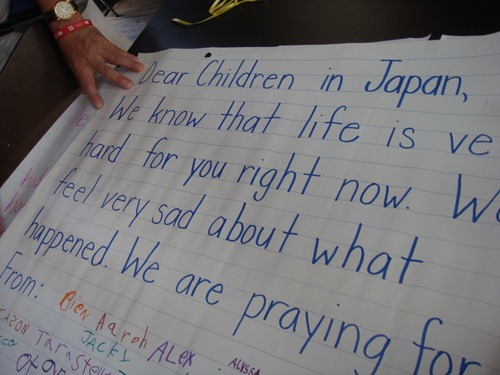 Dear Children in Japan,
We know that life is ve
hard for you right now. We
feel very sad about what
happened. We are praying for
From: Bien Aaron Alex Alyssa
Tara Steven Jacky